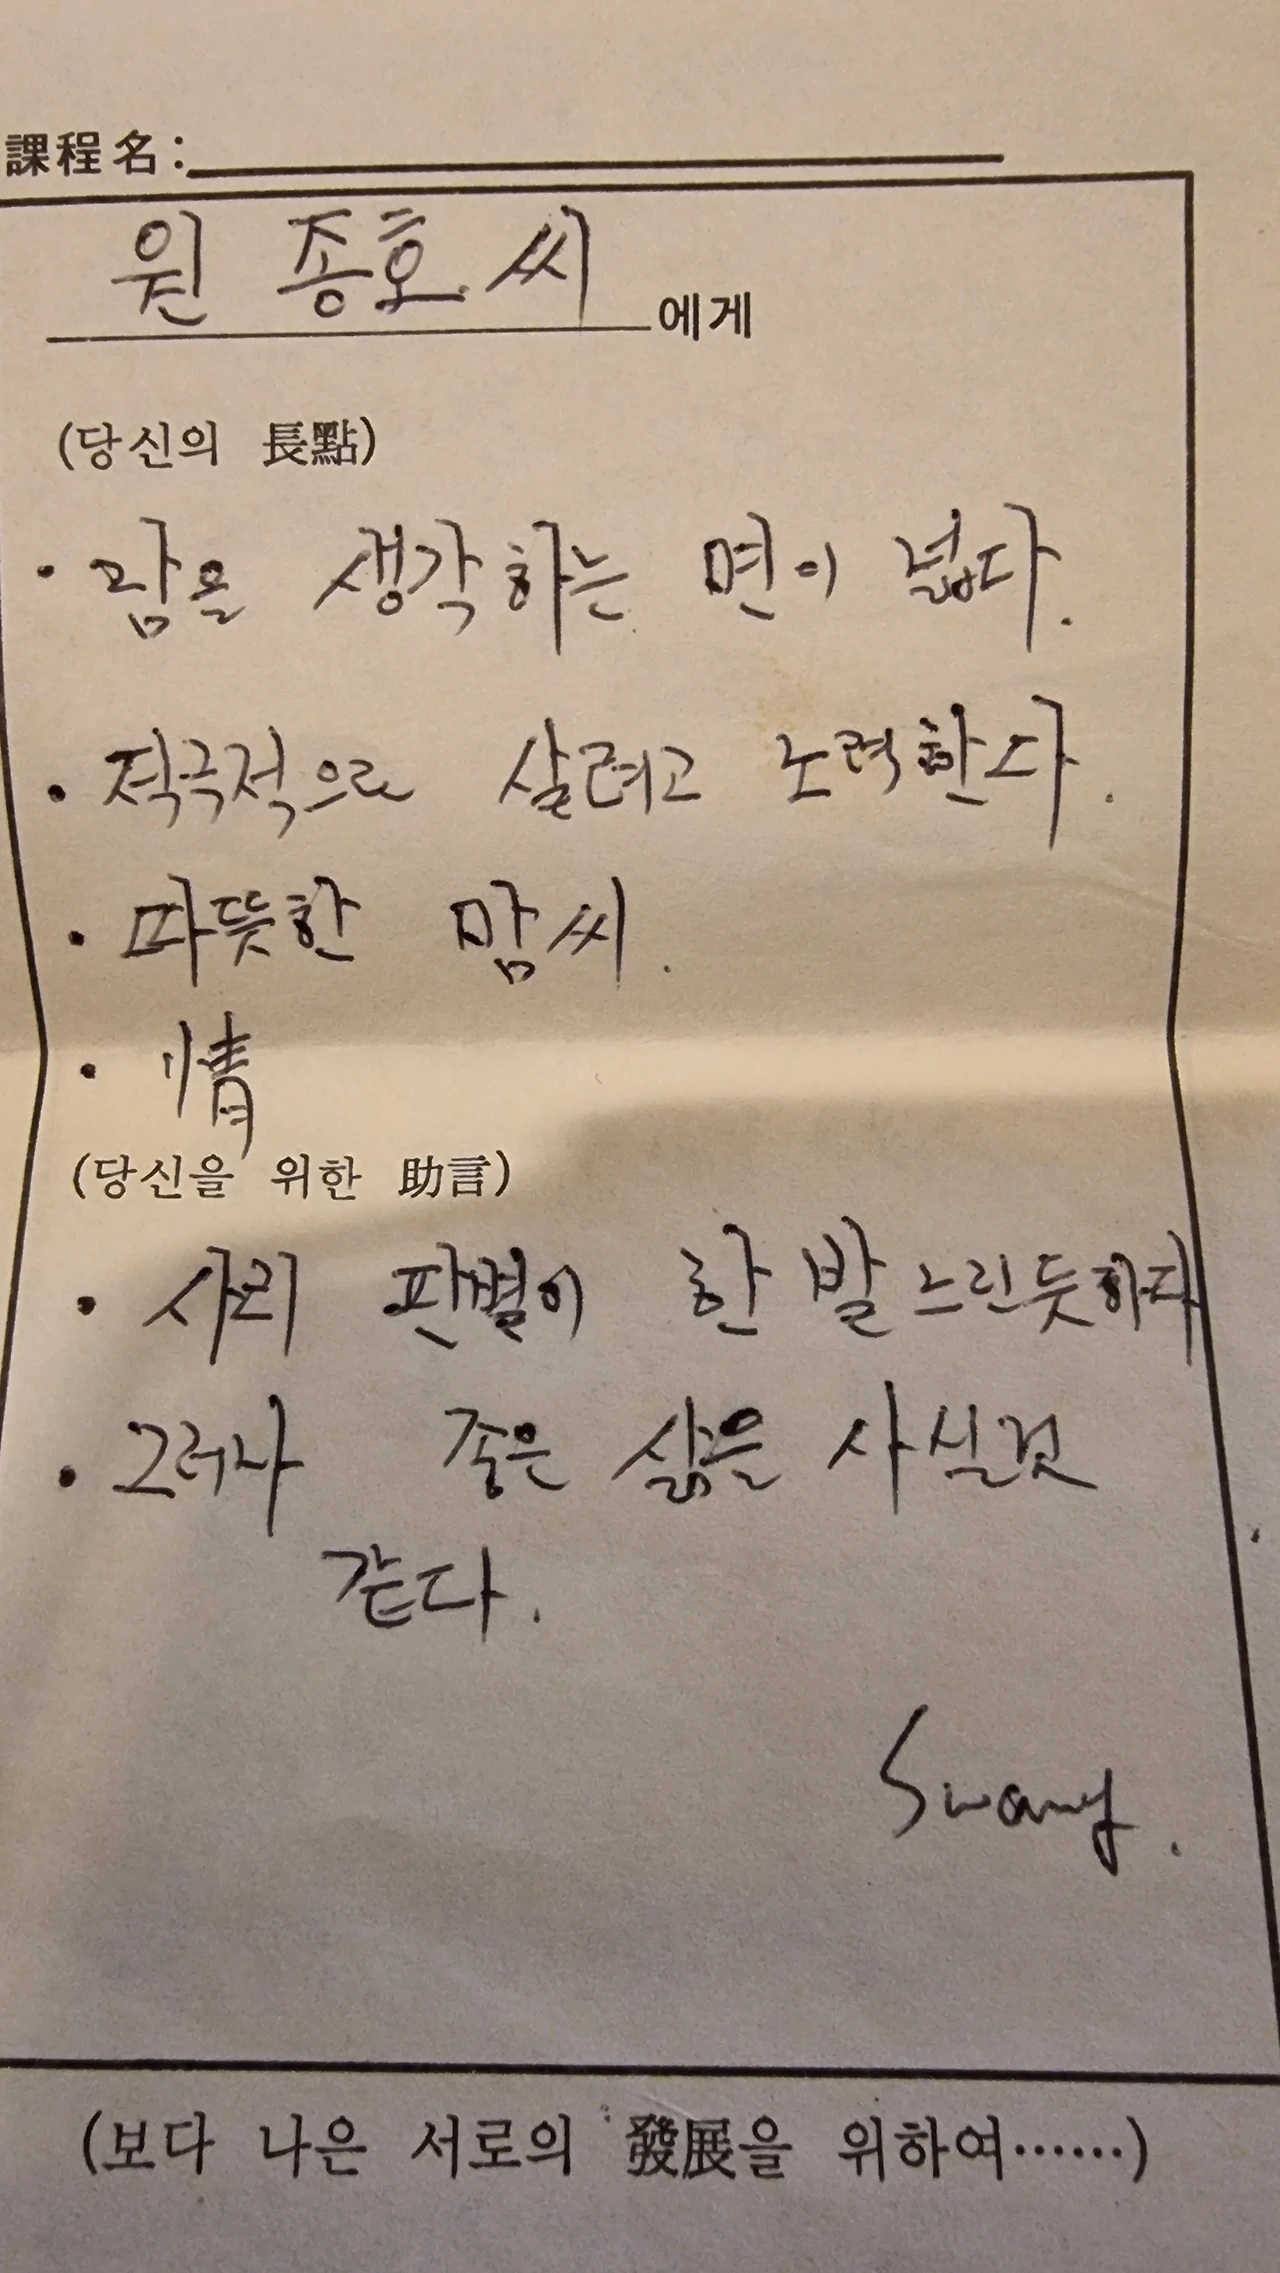 課程名:
원 종호 씨에게
(당신의 長點)
· 람을 생각하는 면이 넓다.
· 적극적으로 살려고 노력한다.
· 따뜻한 맘씨.
· 情
(당신을 위한 助言)
· 사리 판별이 한 발 느린듯하다
· 그러나 좋은 삶을 사실것
같다.
(보다 나은 서로의 發展을 위하여……)